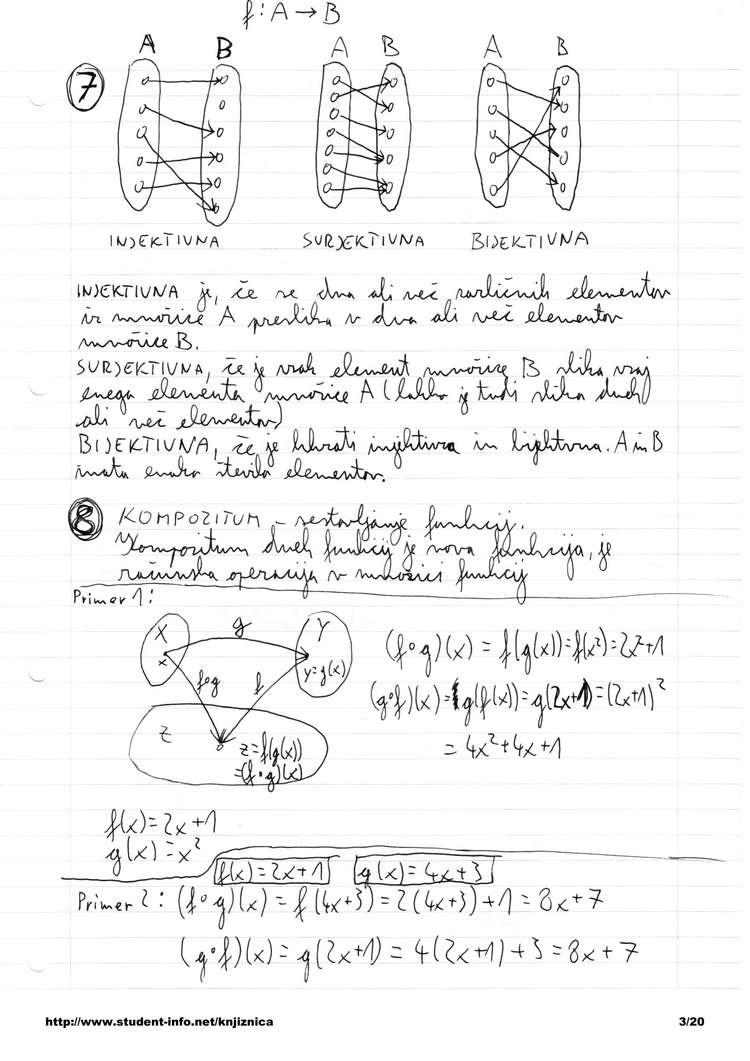 f: A → B
A B A B A B
7
INJEKTIVNA SURJEKTIVNA BIJEKTIVNA
INJEKTIVNA je, če se dva ali več različnih elementov
iz množice A preslika v dva ali več elementov
množice B.
SURJEKTIVNA, če je vsak element množice B slika vsaj
enega elementa množice A (lahko je tudi slika dveh
ali več elementov)
BIJEKTIVNA, če je hkrati injektivna in bijektivna. A in B
imata enako število elementov.
8 KOMPOZITUM – sestavljanje funkcij.
Kompozitum dveh funkcij je nova funkcija, je
računska operacija v množici funkcij
Primer 1:
X g Y
x y=g(x)
f∘g f
Z z=f(g(x))
=(f∘g)(x)
(f∘g)(x) = f(g(x))=f(x²)=2x²+1
(g∘f)(x)=g(f(x))=g(2x+1)=(2x+1)²
= 4x²+4x+1
f(x)=2x+1
g(x)=x²
f(x)=2x+1 g(x)=4x+3
Primer 2: (f∘g)(x) = f(4x+3)=2(4x+3)+1=8x+7
(g∘f)(x)=g(2x+1)=4(2x+1)+3=8x+7
http://www.student-info.net/knjiznica 3/20